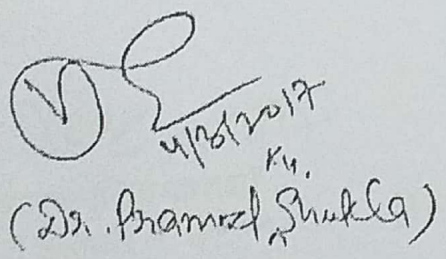 4/8/2017
Ku.
(Dr. Pramod Shukla)